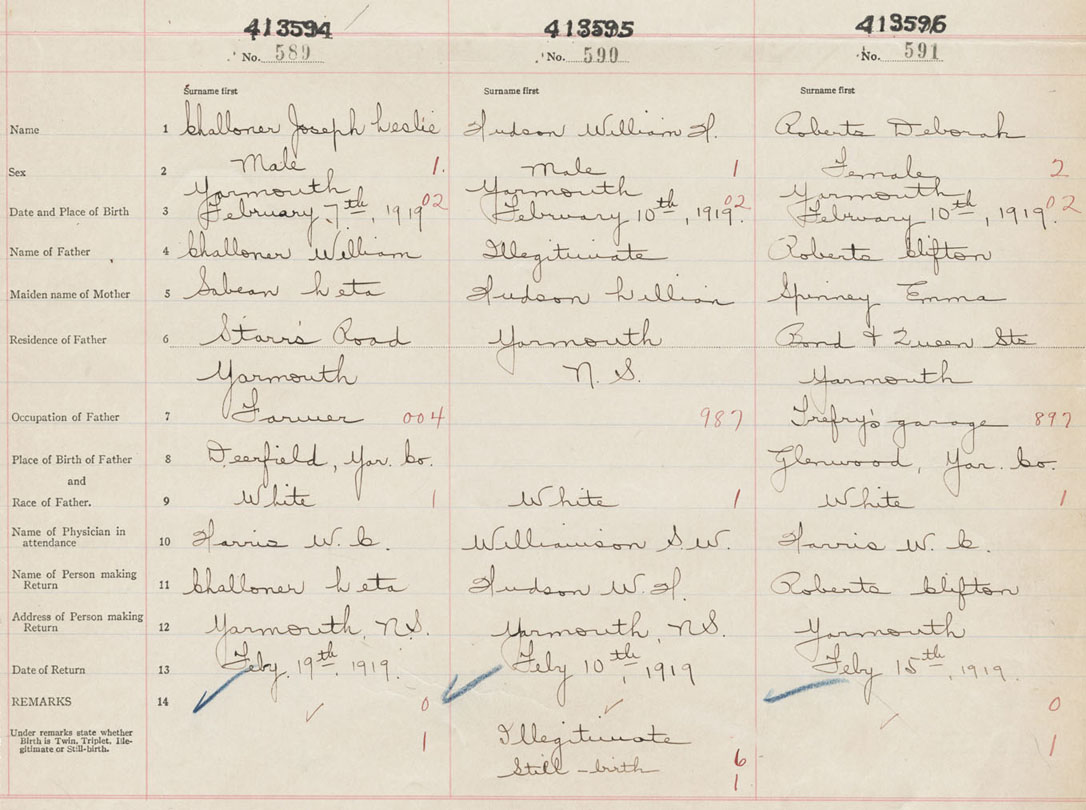 413594 413595 413596
No. 589 No. 590 No. 591
Surname first Surname first Surname first
Name 1 Challoner Joseph Leslie Hudson William H. Roberts Deborah
Sex 2 Male 1. Male 1 Female 2
Yarmouth Yarmouth Yarmouth
Date and Place of Birth 3 February 7th, 1919 02 February 10th, 1919. 02 February 10th, 1919. 02
Name of Father 4 Challoner William Illegitimate Roberts Clifton
Maiden name of Mother 5 Sabean Leta Hudson Lillian Spinney Emma
Residence of Father 6 Starr's Road Yarmouth Bond & Queen Sts
Yarmouth N. S. Yarmouth
Occupation of Father 7 Farmer 004 987 Trefry's garage 897
Place of Birth of Father 8 Deerfield, Yar. Co. Glenwood, Yar. Co.
and
Race of Father. 9 White 1 White 1 White 1
Name of Physician in
attendance 10 Harris W. C. Williamson S. W. Harris W. C.
Name of Person making
Return 11 Challoner Leta Hudson W. H. Roberts Clifton
Address of Person making
Return 12 Yarmouth, N.S. Yarmouth, N.S. Yarmouth
Date of Return 13 Feby. 19th, 1919. Feby 10th, 1919 Feby 15th, 1919.
REMARKS 14 0 0
Under remarks state whether
Birth is Twin, Triplet, Ille-
gitimate or Still-birth. 1 Illegitimate 1
Still-birth 6
1